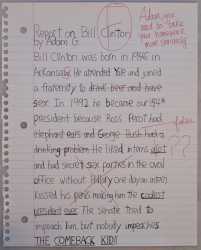 Report on Bill Clinton
by Adam G.
Adam, you need to take your homework more seriously
Bill Clinton was born in 1946 in
Arkansas. He attended Yale and joined
a fraternity to drink beer and have
sex. In 1992 he became our 42nd
president because Ross Perot had
elephant ears and George Bush had a
drinking problem He liked interns
and had secret sex parties in the oval
office without Hillary one day an intern
kissed his penis making him the coolest
president ever The senate tried to
impeach him, but nobody impeaches
THE COMEBACK KID!
??